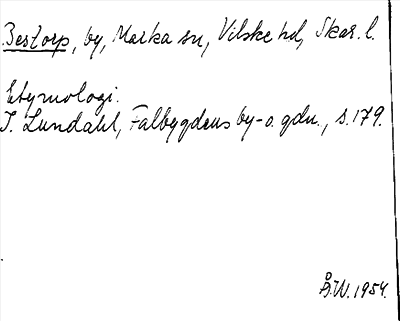 Bestorp, by, Marka sn, Vilske hd, Skar. l.
Etymologi.
I. Lundahl, Falbygdens by-o. gdn., s. 179.
Å.W. 1954.